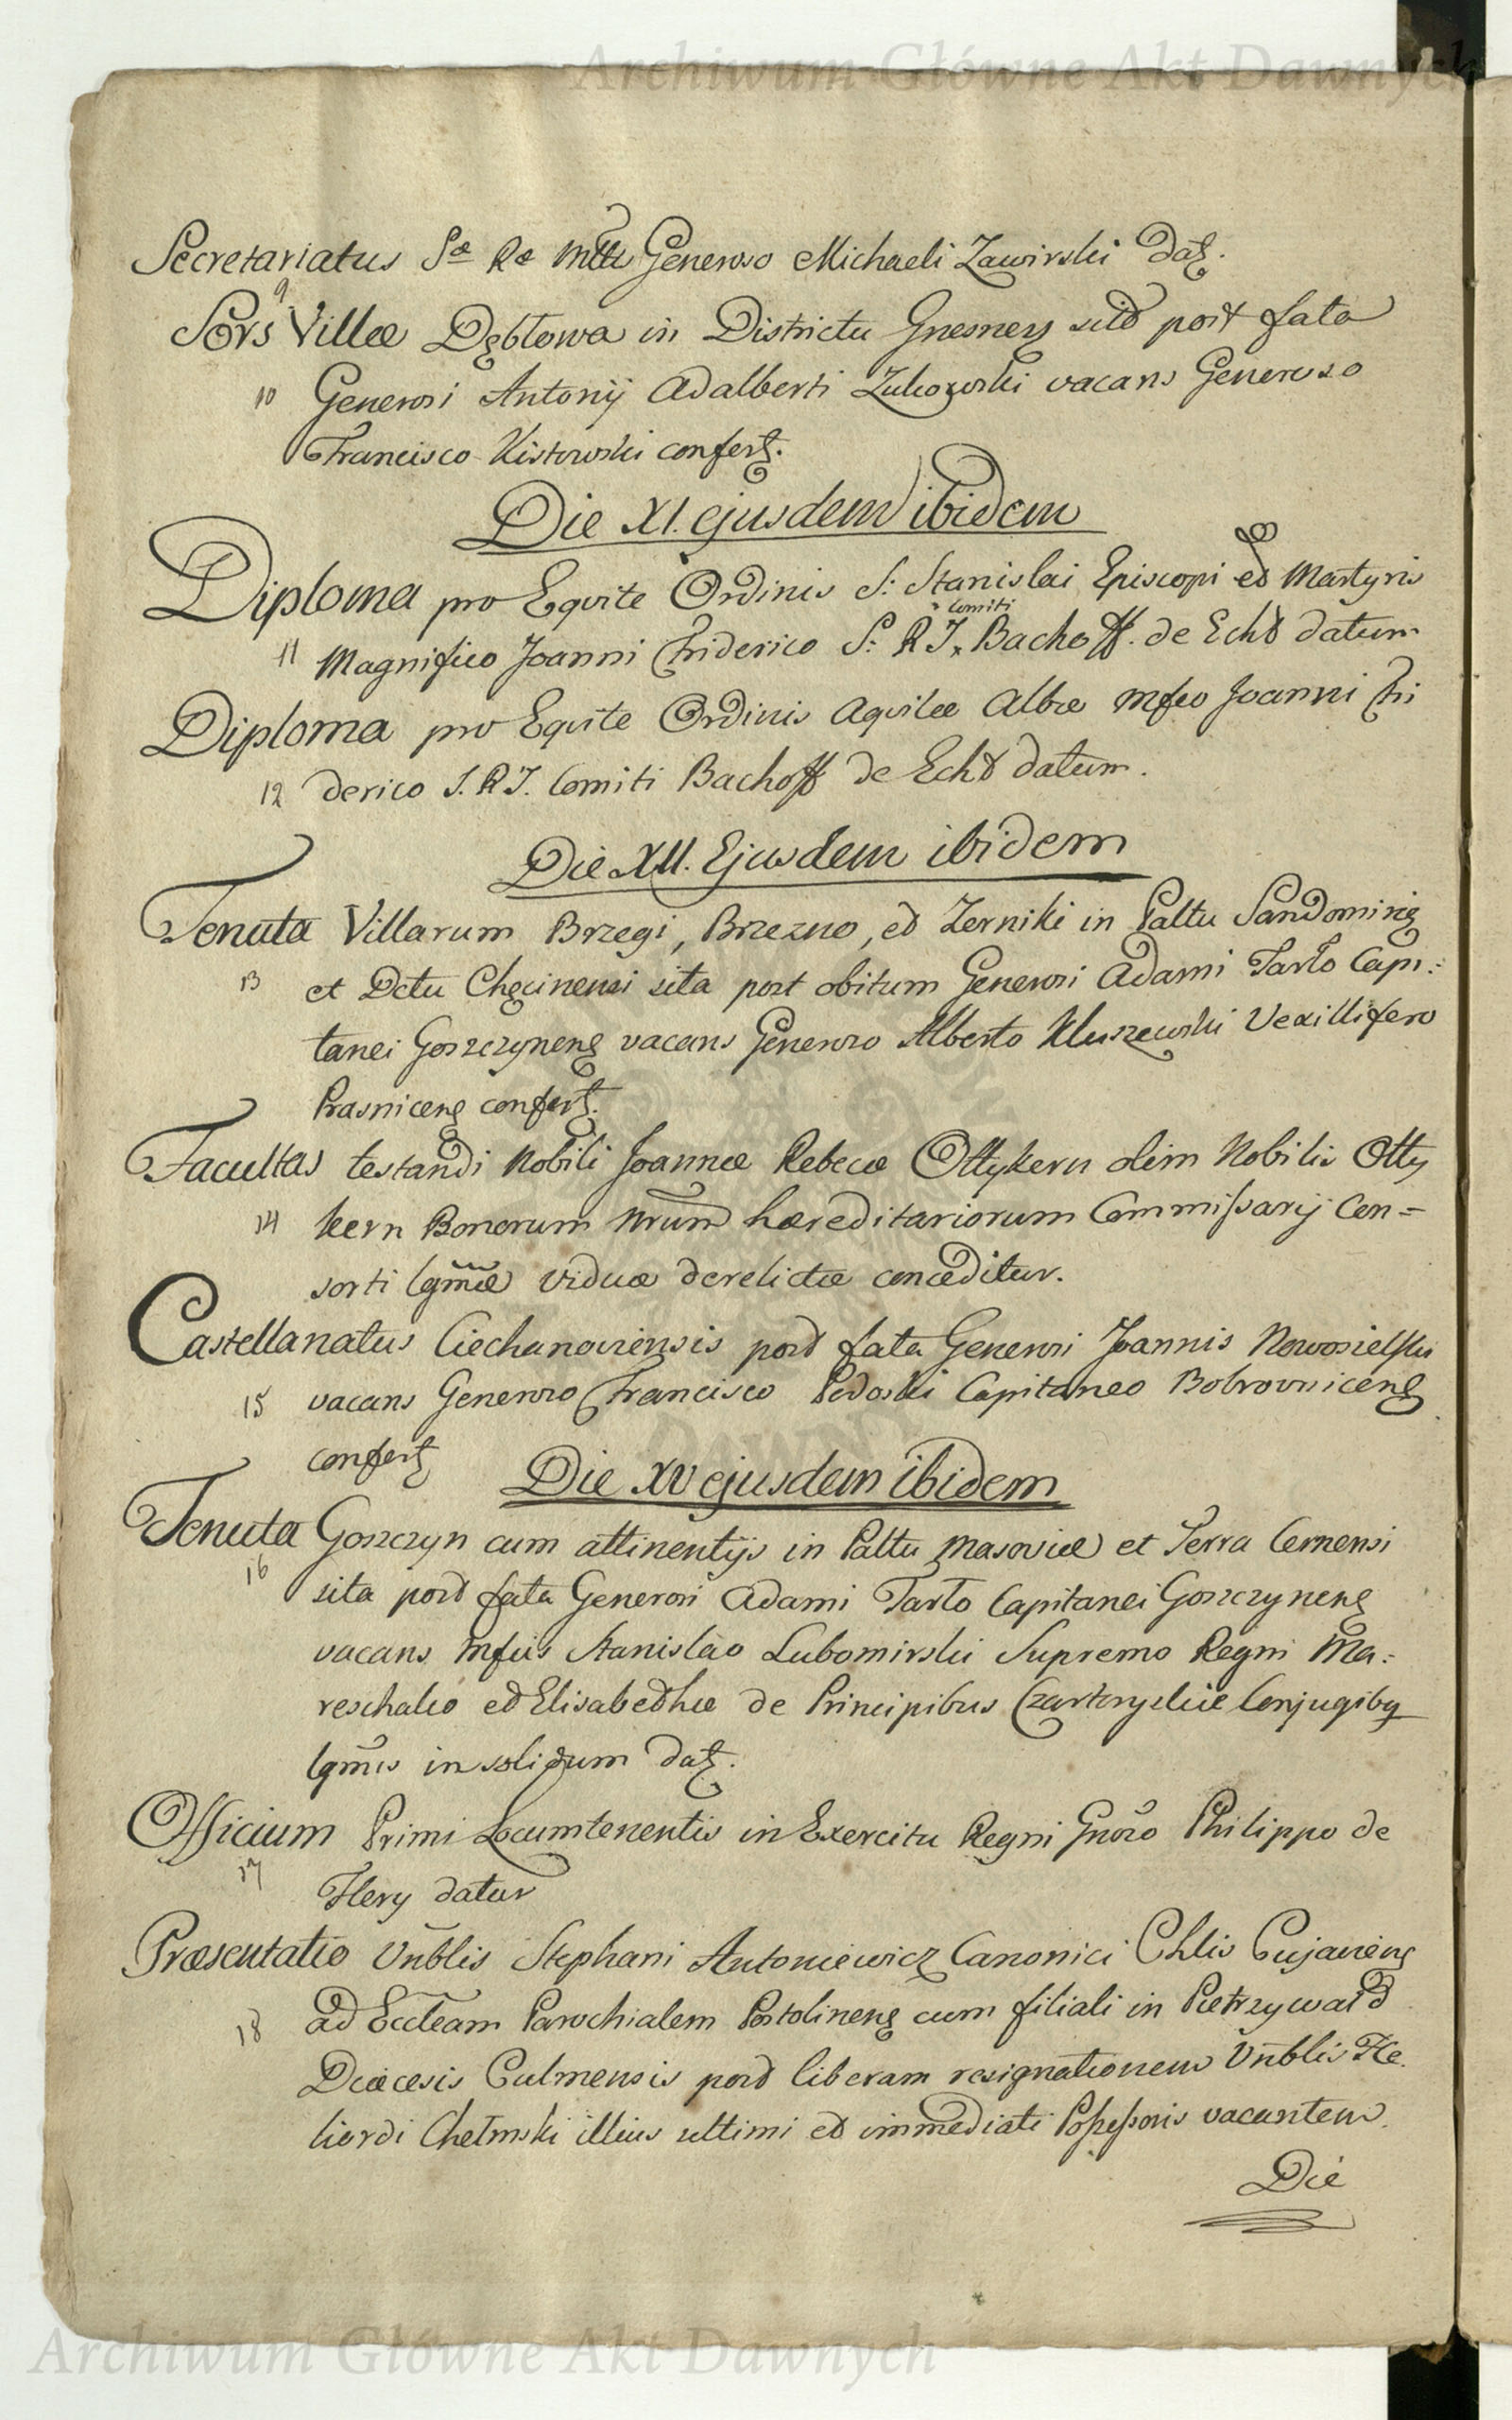 Archiwum Główne Akt Dawnych
Secretariatus Sæ Ræ Mttis Generoso Michaeli Zawirski datʒ.
9
Sors Villæ Dębłowa in Districtu Gnesnens sita post fata
10 Generosi Antonij Adalberti Zukowski vacans Generoso
Francisco Kistowski confertʒ.
Die XI. ejusdem ibidem
Diploma pro Equite Ordinis S: Stanislai Episcopi et Martyris
Comiti
11 Magnifico Joanni Friderico S: R I. × Bachoff. de Echt datum
Diploma pro Equite Ordinis Aquilæ Albæ Mfco Joanni Fri
12 derico S. R I. Comiti Bachoff de Echt datum.
Die XII. Ejusdem ibidem
Tenuta Villarum Brzegi, Brzezno, et Zerniki in Paltu Sandomirieʒ
13 et Dctu Chęcinensi sita post obitum Generosi Adami Tarło Capi:
tanei Goszczynenʒ vacans Generoso Alberto Kluszewski Vexillifero
Prasnicenʒ confertʒ.
Facultas testandi Nobili Joannæ Rebecæ Ottykern olim Nobilis Otty
14 kern Bonorum Nrum hæreditariorum Commissarij Con=
sorti lgmæ viduæ derelictæ conceditur.
Castellanatus Ciechanoviensis post fata Generosi Joannis Nowosielski
15 vacans Generoso Francisco Pedoski Capitaneo Bobrowniceng
confertʒ
Die XV ejusdem ibidem
Tenuta Goszczyn cum attinentijs in Paltu Masoviæ et Terra Cernensi
16 sita post fata Generosi Adami Tarło Capitanei Goszczynenʒ
vacans Mfcis Stanislao Lubomirski Supremo Regni Ma:
reschalco et Elisabethæ de Principibus Czartoryskie Conjugibʒ
lgmis in solidum datʒ.
Officium Primi Locumtenentis in Exercitu Regni Gnoso Philippo de
17
Flery datur
Præsentatio Vnblis Stephani Antoniewicz Canonici Chlis Cujaviensʒ
18 ad Eccleam Parochialem Postolinenʒ cum filiali in Pietrzywald
Diæcesis Culmensis post liberam resignationem Vnblis He
liordi Chełmski illius ultimi et immediati Possessoris vacantem.
Die
Archiwum Główne Akt Dawnych